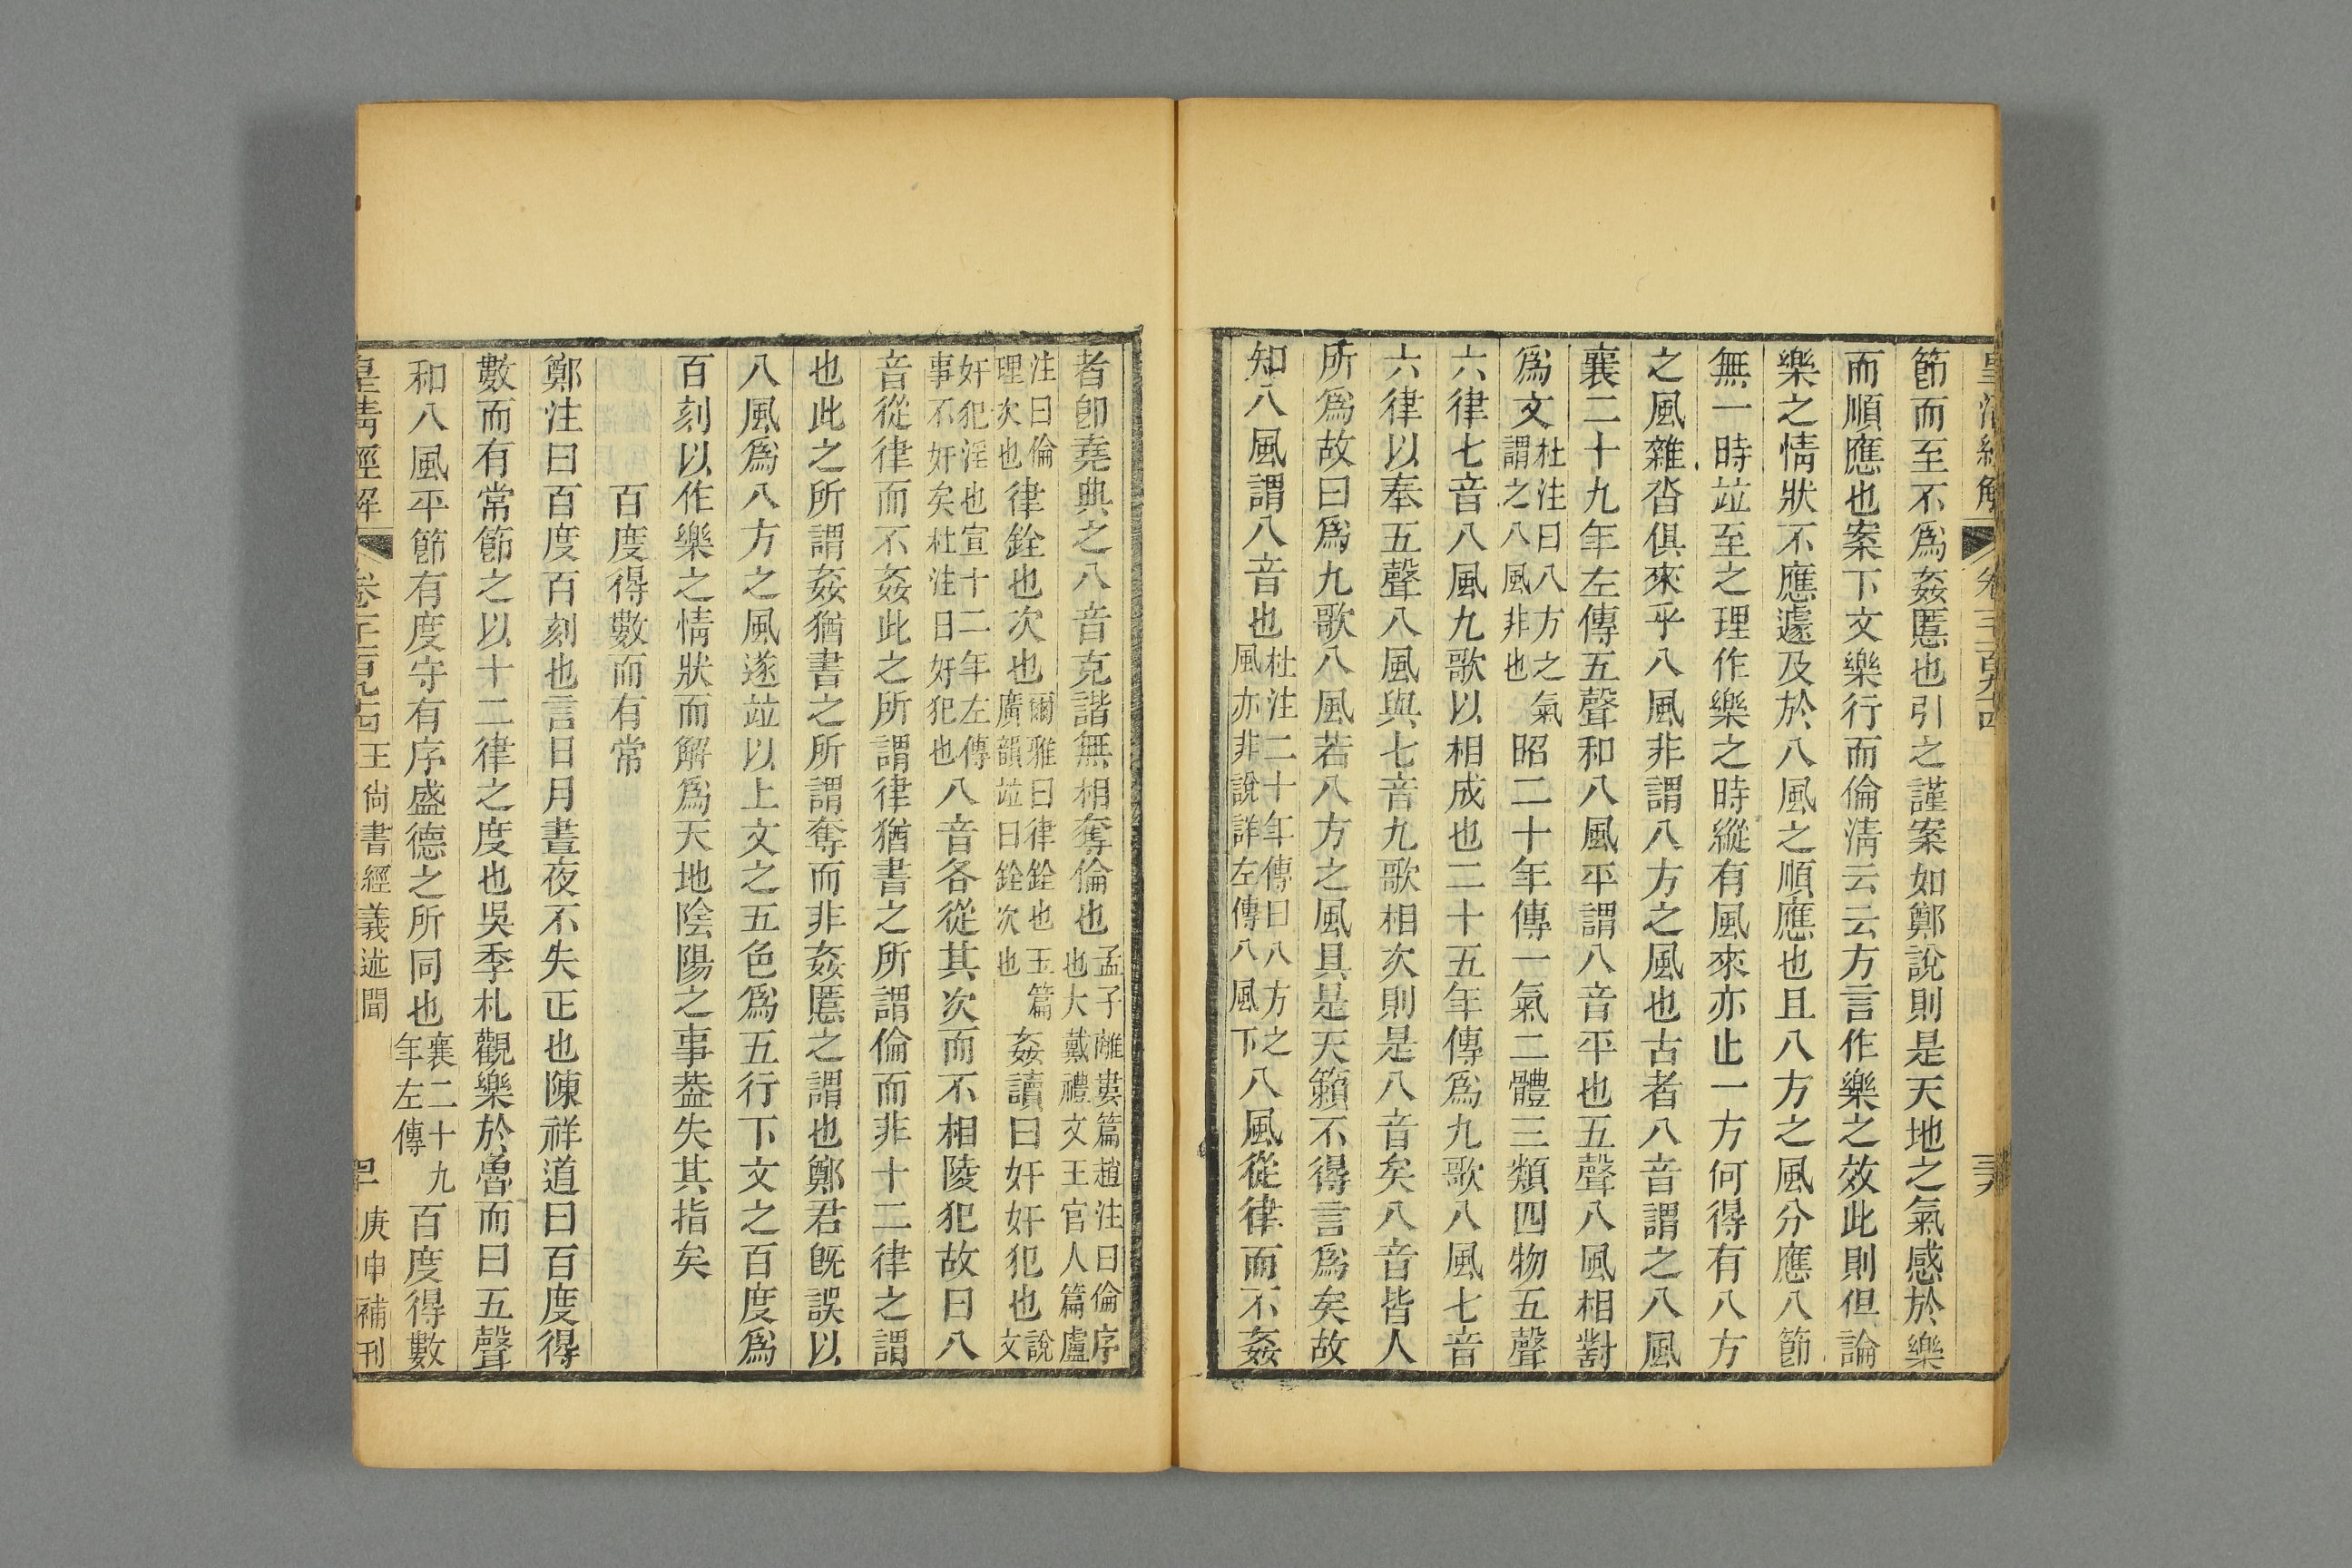 皇清經解 卷一千一百九十四
節而至不爲姦慝也引之謹案如鄭說則是天地之氣感於樂
而順應也案下文樂行而倫淸云云方言作樂之效此則但論
樂之情狀不應遽及於八風之順應也且八方之風分應八節
無一時竝至之理作樂之時縱有風來亦止一方何得有八方
之風雜沓俱來乎八風非謂八方之風也古者八音謂之八風
襄二十九年左傳五聲和八風平謂八音平也五聲八風相對
爲文杜注曰八方之氣謂之八風非也昭二十年傳一氣二體三類四物五聲
六律七音八風九歌以相成也二十五年傳爲九歌八風七音
六律以奉五聲八風與七音九歌相次則是八音矣八音皆人
所爲故曰爲九歌八風若八方之風具是天籟不得言爲矣故
知八風謂八音也杜注二十年傳曰八方之風亦非說詳左傳八風下八風從律而不姦
者卽堯典之八音克諧無相奪倫也孟子離婁篇趙注曰倫序也大戴禮文王官人篇盧
注曰倫理次也律銓也次也爾雅曰律銓也玉篇廣韻竝曰銓次也姦讀曰奸奸犯也說文
奸犯淫也宣十二年左傳事不奸矣杜注曰奸犯也八音各從其次而不相陵犯故曰八
音從律而不姦此之所謂律猶書之所謂倫而非十二律之謂
也此之所謂姦猶書之所謂奪而非姦慝之謂也鄭君旣誤以
八風爲八方之風遂竝以上文之五色爲五行下文之百度爲
百刻以作樂之情狀而解爲天地陰陽之事葢失其指矣
百度得數而有常
鄭注曰百度百刻也言日月晝夜不失正也陳祥道曰百度得
數而有常節之以十二律之度也吳季札觀樂於魯而曰五聲
和八風平節有度守有序盛德之所同也襄二十九年左傳百度得數
皇清經解 王尙書經義述聞 庚申補刊